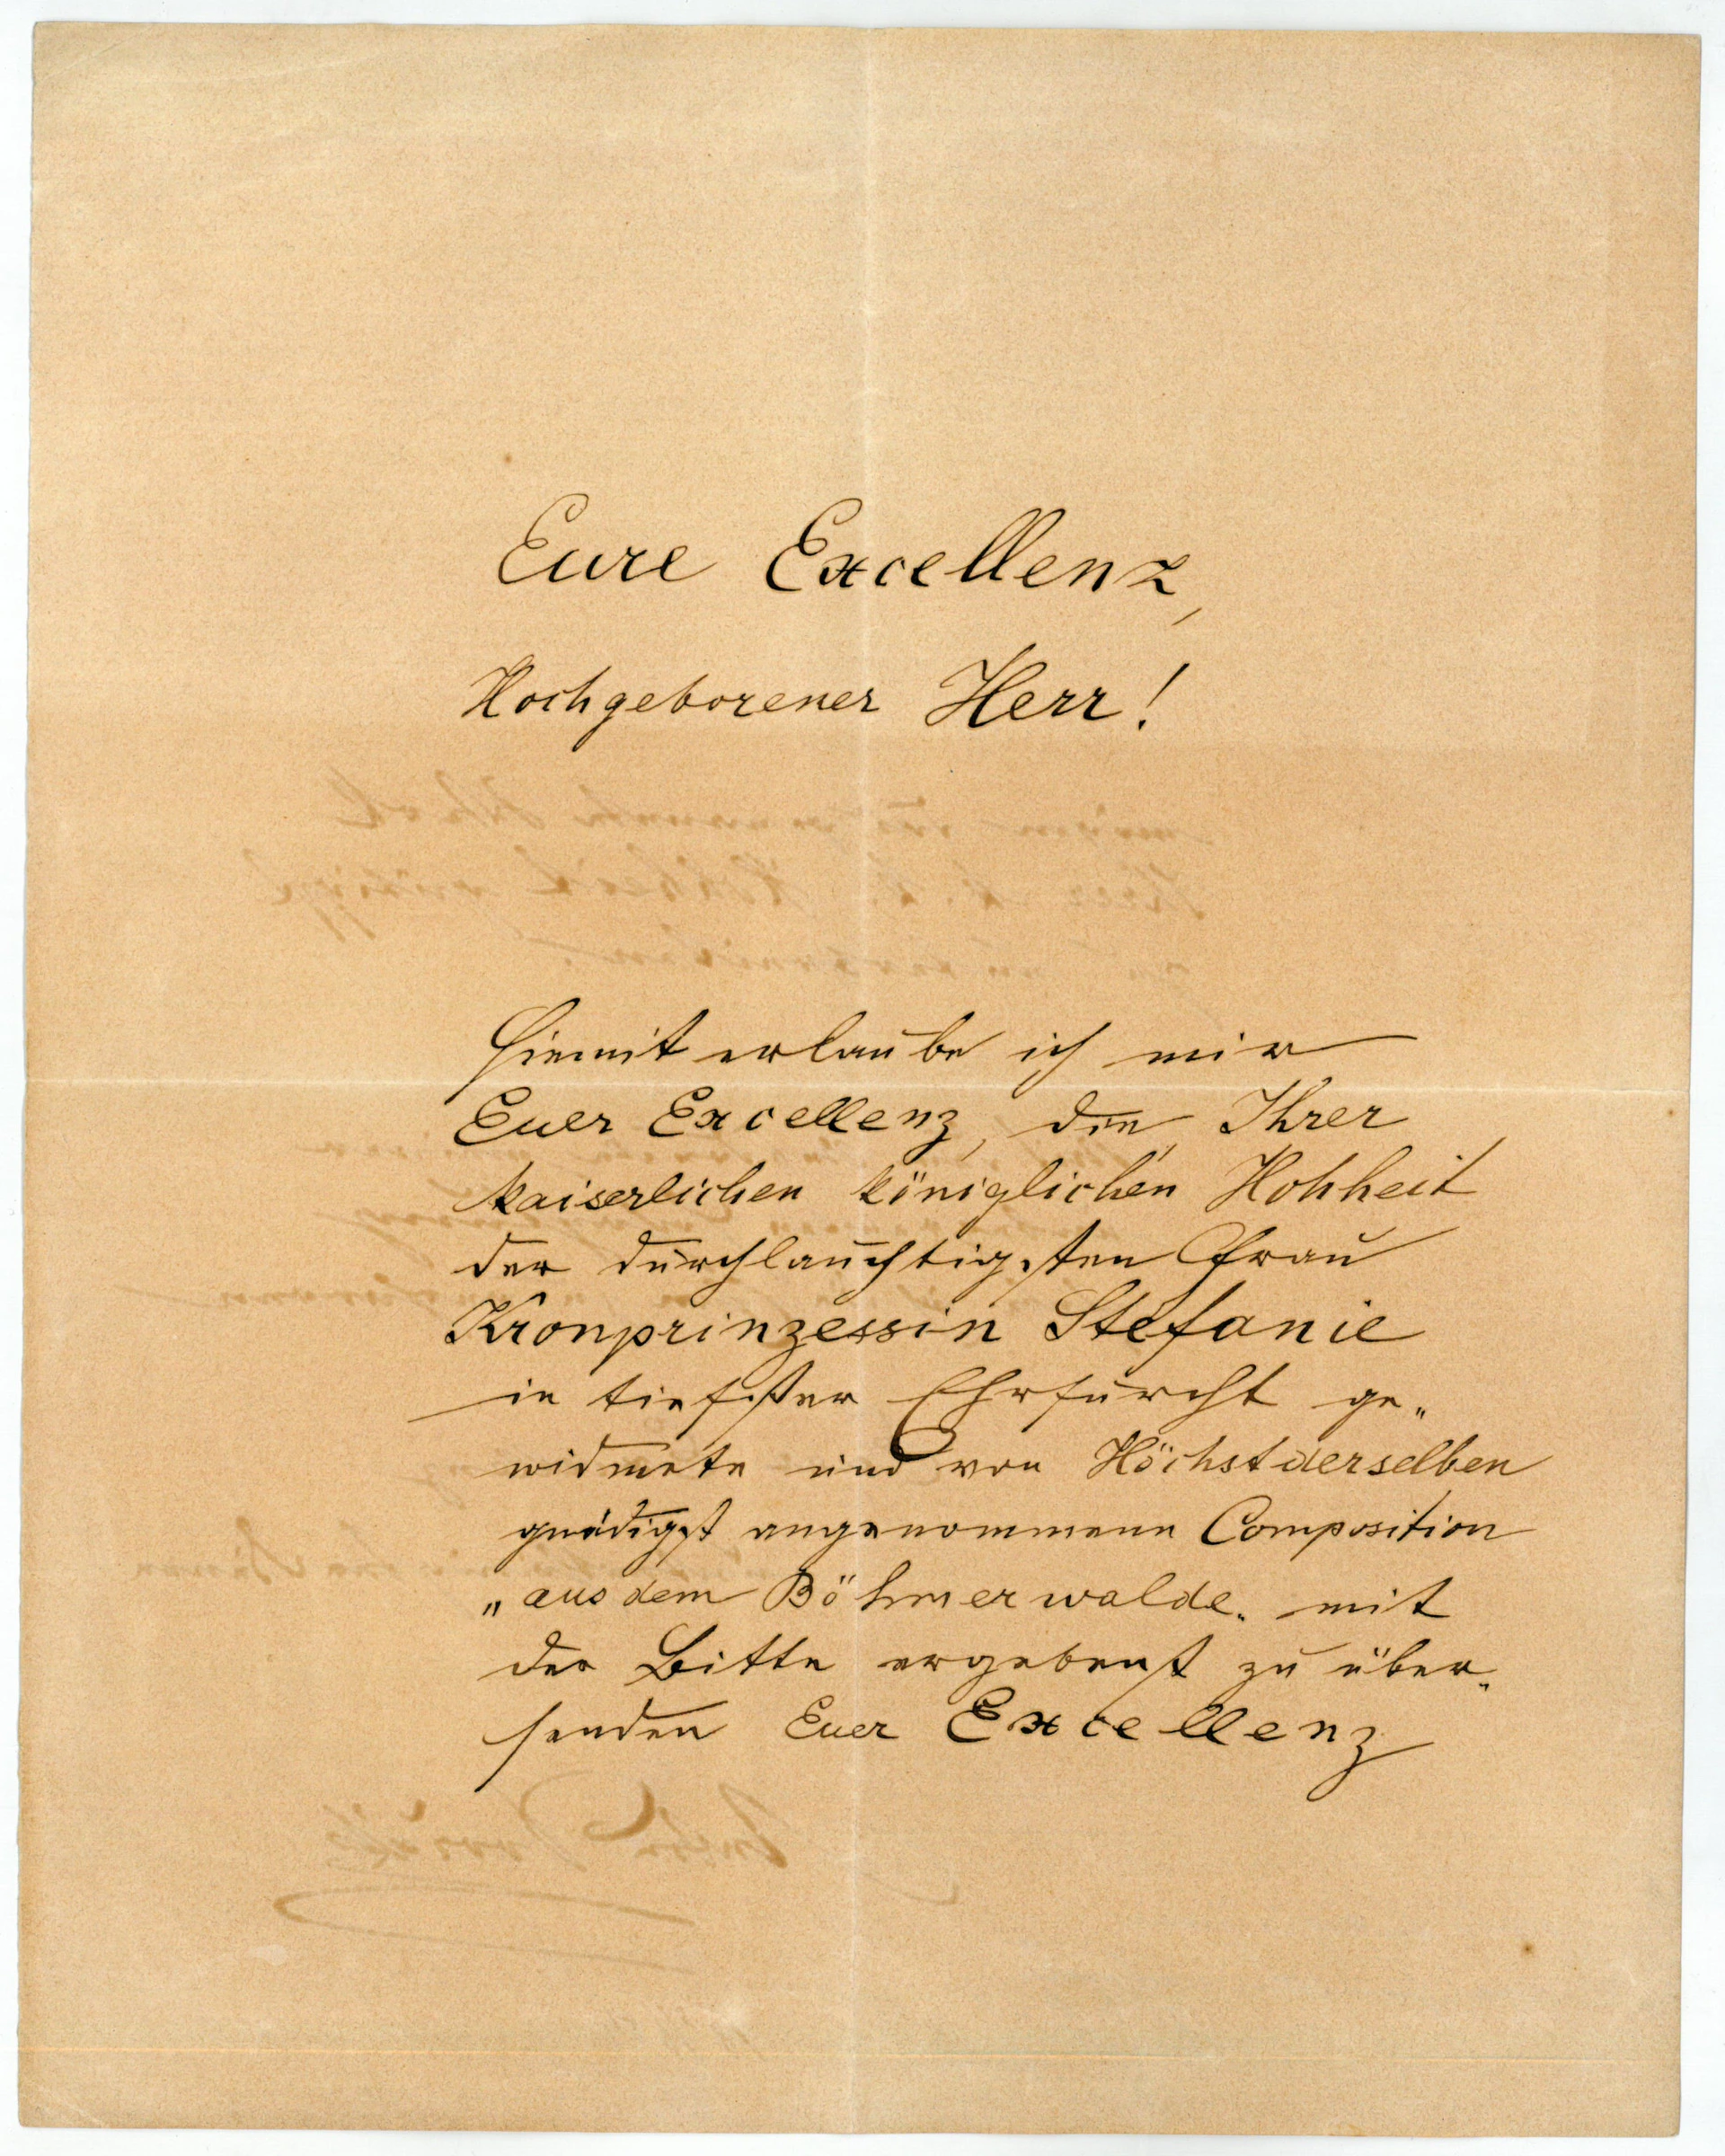 Eure Excellenz,
Hochgeborener Herr!
Hiemit erlaube ich mir
Euer Excellenz, die, Ihrer
kaiserlichen königlichen Hohheit
der durchlauchtigsten Frau
Kronprinzessin Stefanie
in tiefster Ehrfurcht ge„
widmete und von Höchstderselben
gnädigst angenommene Composition
„aus dem Böhmerwalde„ mit
der Bitte ergebenst zu über„
senden Euer Excellenz